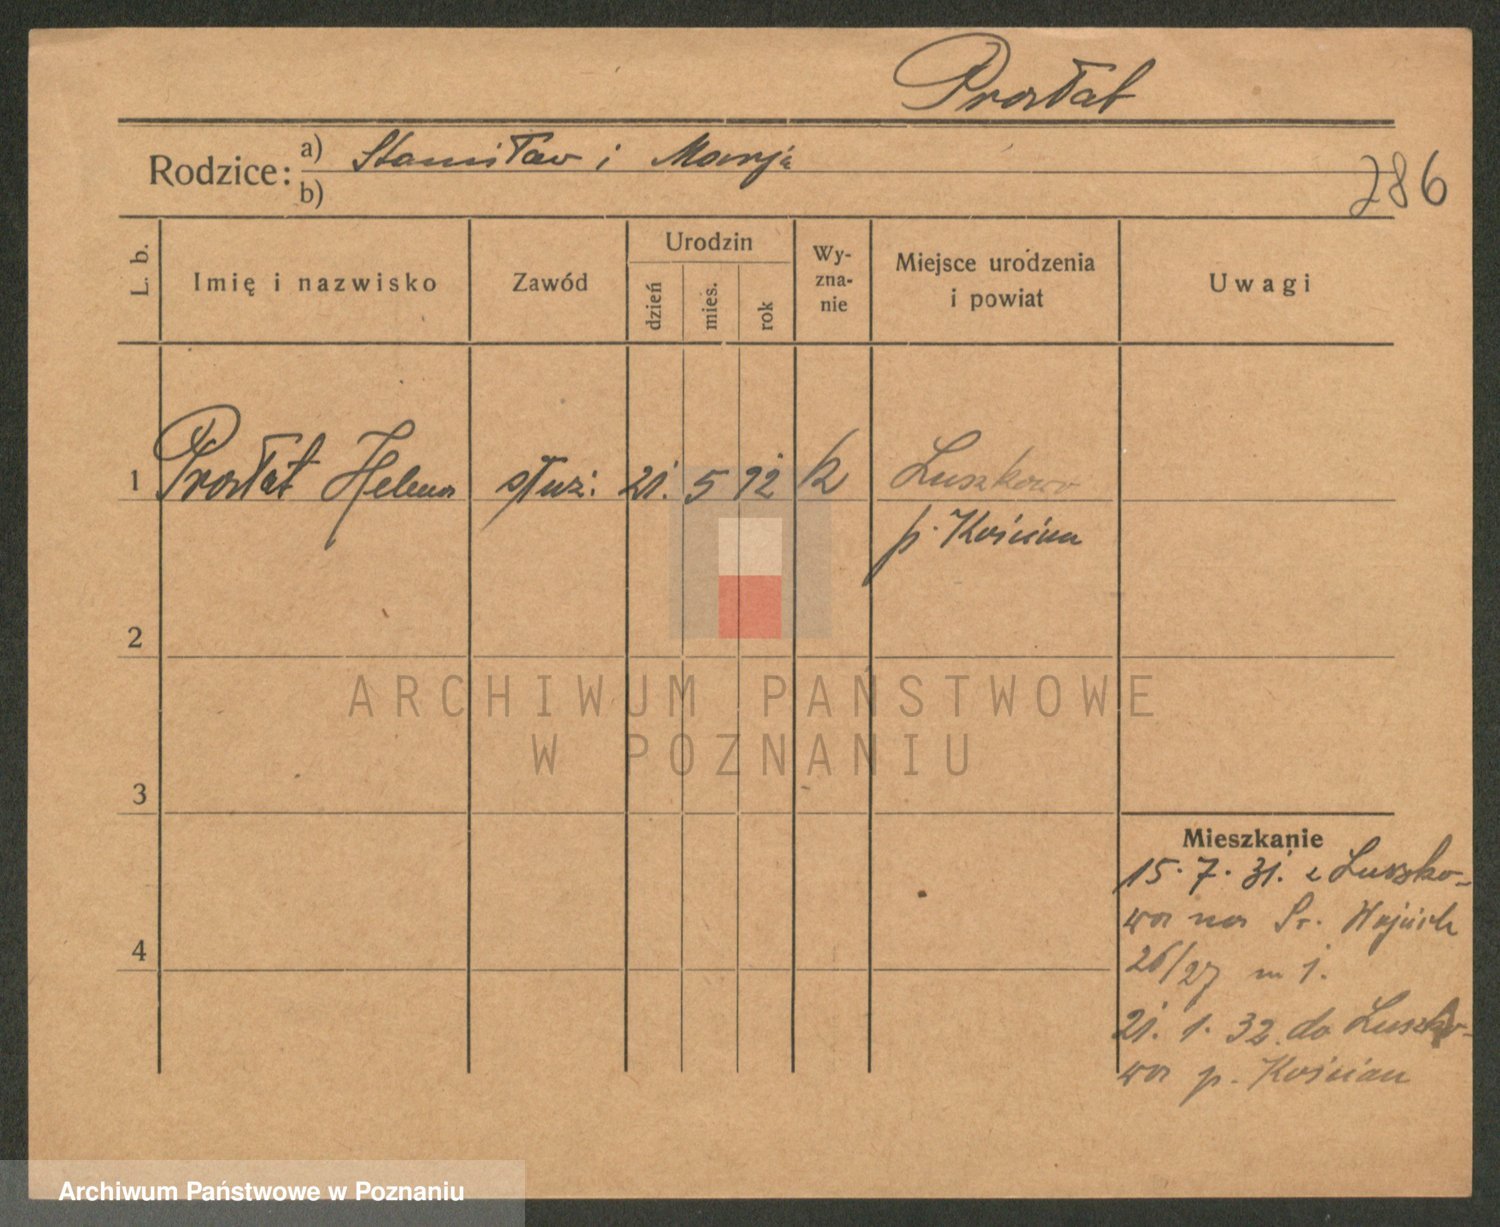 Prostat
Rodzice: a) Stanisław i Marja
b)
286
L. b.
Imię i nazwisko
Zawód
Urodzin
dzień
mies.
rok
Wy-
zna-
nie
Miejsce urodzenia
i powiat
Uwagi
1 Helena służ. 21. 5 12 k Luszkowo
p. Kościan
2
ARCHIWUM PAŃSTWOWE
W POZNANIU
3
Mieszkanie
15. 7. 31. z Luszko-
wa na Św. Wojciech
26/27 m 1.
21. 1. 32. do Luszko-
wa p. Kościan
4
Archiwum Państwowe w Poznaniu